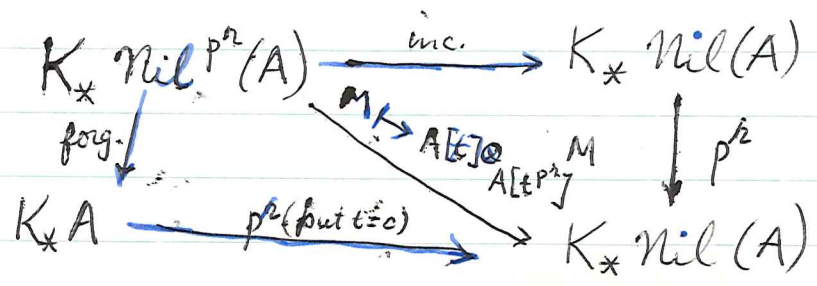 K_* Nil^{p^r}(A) inc. K_* Nil(A)
forg. M ↦ A[t]⊗_{A[t^{p^r}]} M p^r
K_* A p^r (put t=0) K_* Nil(A)